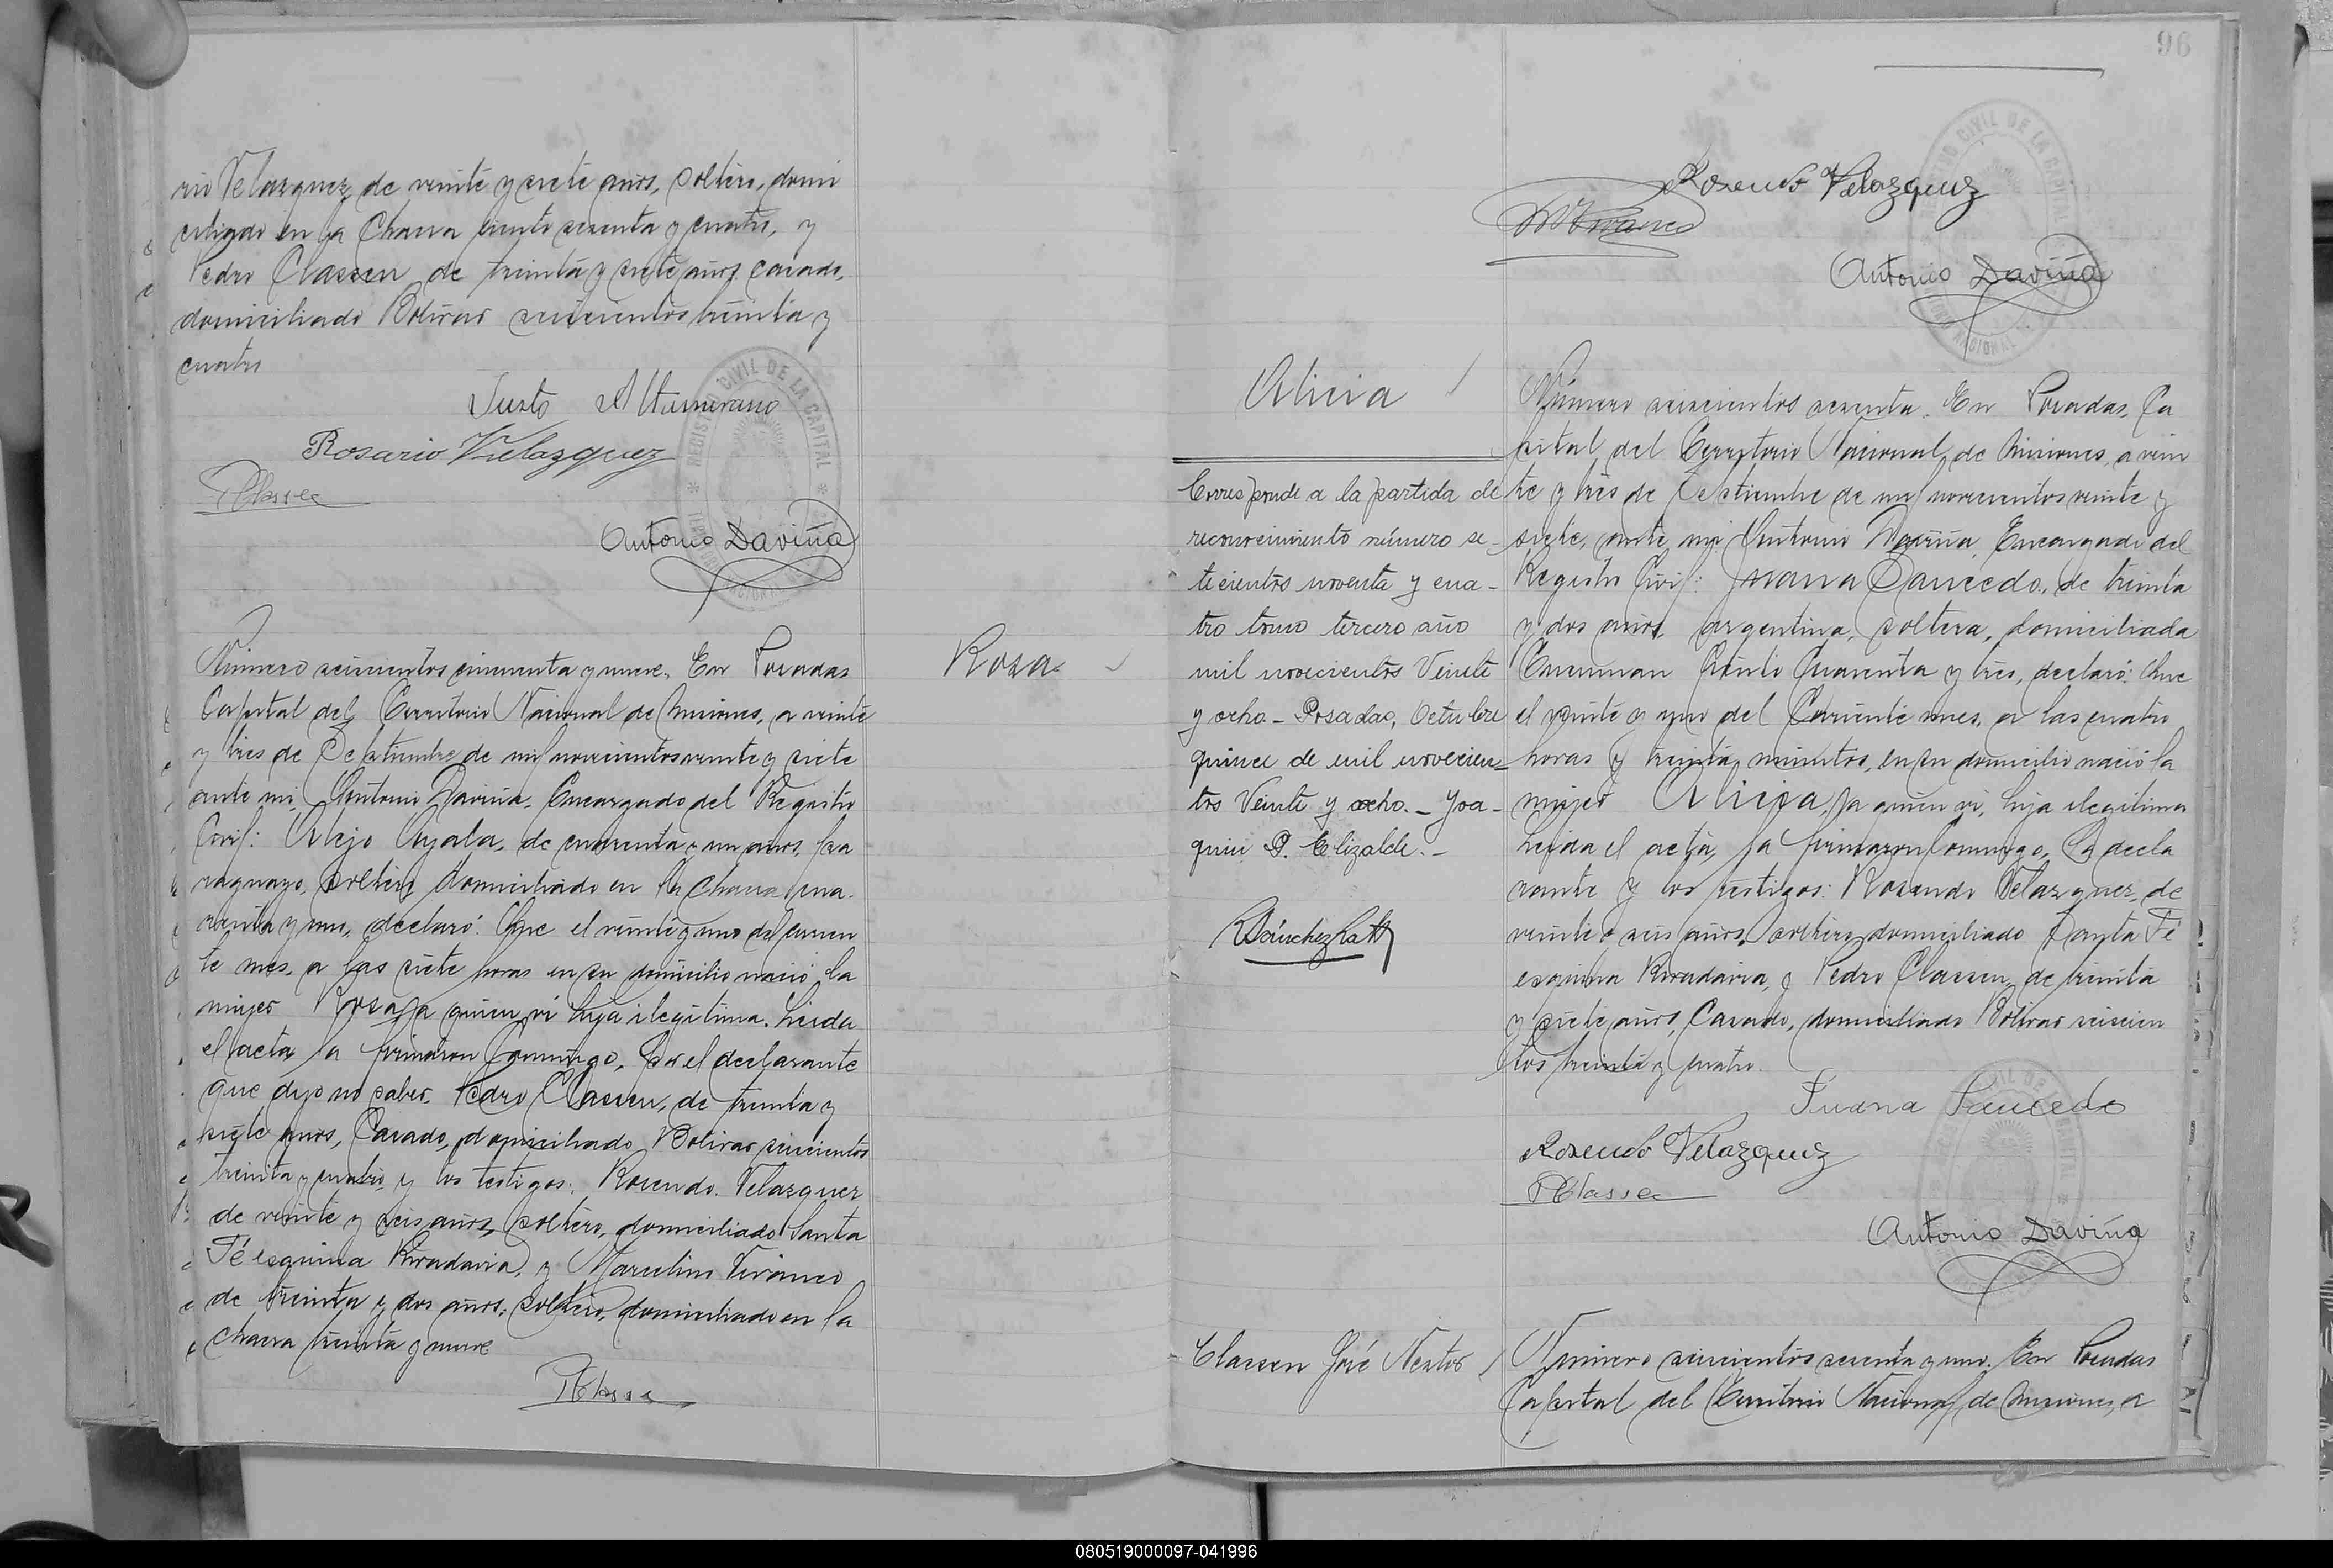 rio Velazquez, de veinte y siete años, soltero, domi
ciliado en la Chacra ciento sesenta y cuatro, y
Pedro Classen, de treinta y siete años, casado,
domiciliado Bolivar seiscientos treinta y
cuatro
Justo Altamirano
Rosario Velazquez
PClassen
Antonio Daviña
REGISTRO CIVIL DE LA CAPITAL
Número seiscientos cincuenta y nueve. En Posadas
Capital del Territorio Nacional de Misiones, a veinte
y tres de Septiembre de mil novecientos veinte y siete
ante mi, Antonio Daviña, Encargado del Registro
Civil: Alejo Ayala, de cuarenta y un años, pa
raguayo, soltero, domiciliado en la Chacra cua
renta y uno, declaró: Que el veinte y uno del corrien
te mes, a las siete horas en su domicilio nació la
mujer Rosa, a quien vi, hija ilegítima. Leida
el acta, la firmaron conmigo, Por el declarante
que dijo no saber, Pedro Classen, de treinta y
siete años, Casado, domiciliado Bolivar seiscientos
treinta y cuatro y los testigos: Rosendo Velazquez
de veinte y seis años, soltero, domiciliado Santa
Fé esquina Rivadavia, y Marcelino Vivanco
de treinta y dos años, soltero, domiciliado en la
chacra treinta y nueve
PClassen
Rosa
96
Rosendo Velazquez
MVivanco
Antonio Daviña
Alicia
Corresponde a la partida de
reconocimiento número se-
tecientos noventa y cua-
tro tomo tercero año
mil novecientos Veinte
y ocho.- Posadas, Octubre
quince de mil novecien-
tos Veinte y ocho.- Joa-
quin P. Elizalde.-
RSánchezRatti
Número seiscientos sesenta. En Posadas, Ca
pital del Territorio Nacional de Misiones, a vein
te y tres de Septiembre de mil novecientos veinte y
siete, ante mi, Antonio Daviña, Encargado del
Registro Civil: Juana Saucedo, de treinta
y dos años, argentina, soltera, domiciliada
Tucuman Ciento Cuarenta y tres, declaró: Que
el veinte y uno del Corriente mes, a las cuatro
horas y treinta minutos, en su domicilio nació la
mujer Alicia, a quien vi, hija ilegítima
Leida el acta, la firmaron Conmigo, la decla
rante y los testigos: Rosendo Velazquez, de
veinte y seis años, soltero, domiciliado Santa Fé
esquina Rivadavia, y Pedro Classen, de treinta
y siete años, Casado, domiciliado Bolivar seiscien
tos treinta y cuatro.
Juana Saucedo
Rosendo Velazquez
PClassen
Antonio Daviña
Classen José Nestor
Número seiscientos sesenta y uno. En Posadas
Capital del Territorio Nacional de Misiones, a
080519000097-041996